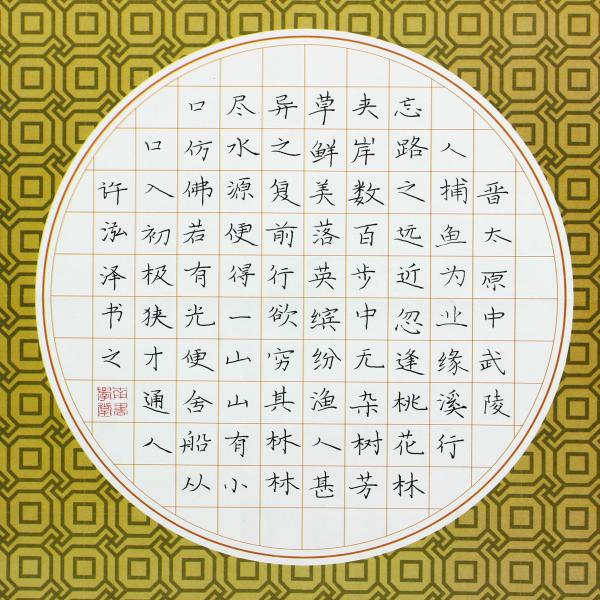 晋太原中武陵
人捕鱼为业缘溪行
忘路之远近忽逢桃花林
夹岸数百步中无杂树芳
草鲜美落英缤纷渔人甚
异之复前行欲穷其林林
尽水源便得一山山有小
口仿佛若有光便舍船从
口入初极狭才通人
许泓泽书之